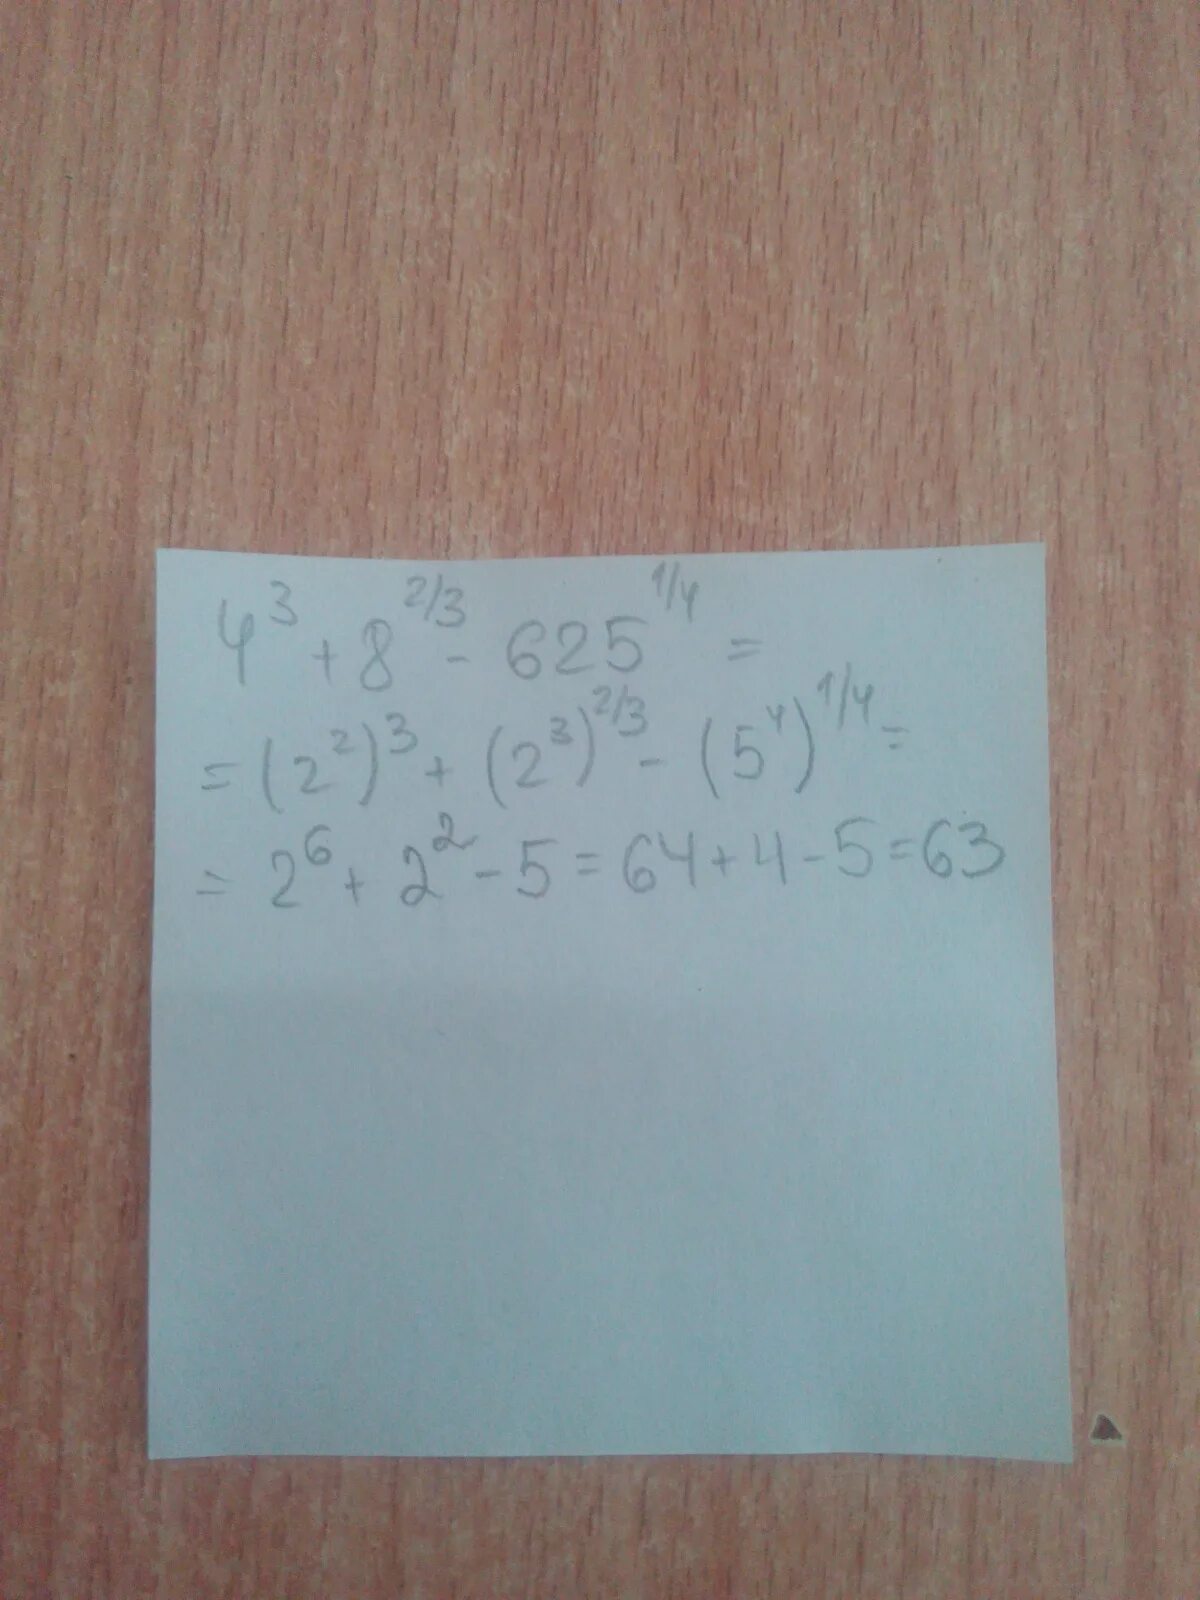 4³ + 8^(2/3) - 625^(1/4) =
= (2²)³ + (2³)^(2/3) - (5⁴)^(1/4) =
= 2⁶ + 2² - 5 = 64 + 4 - 5 = 63